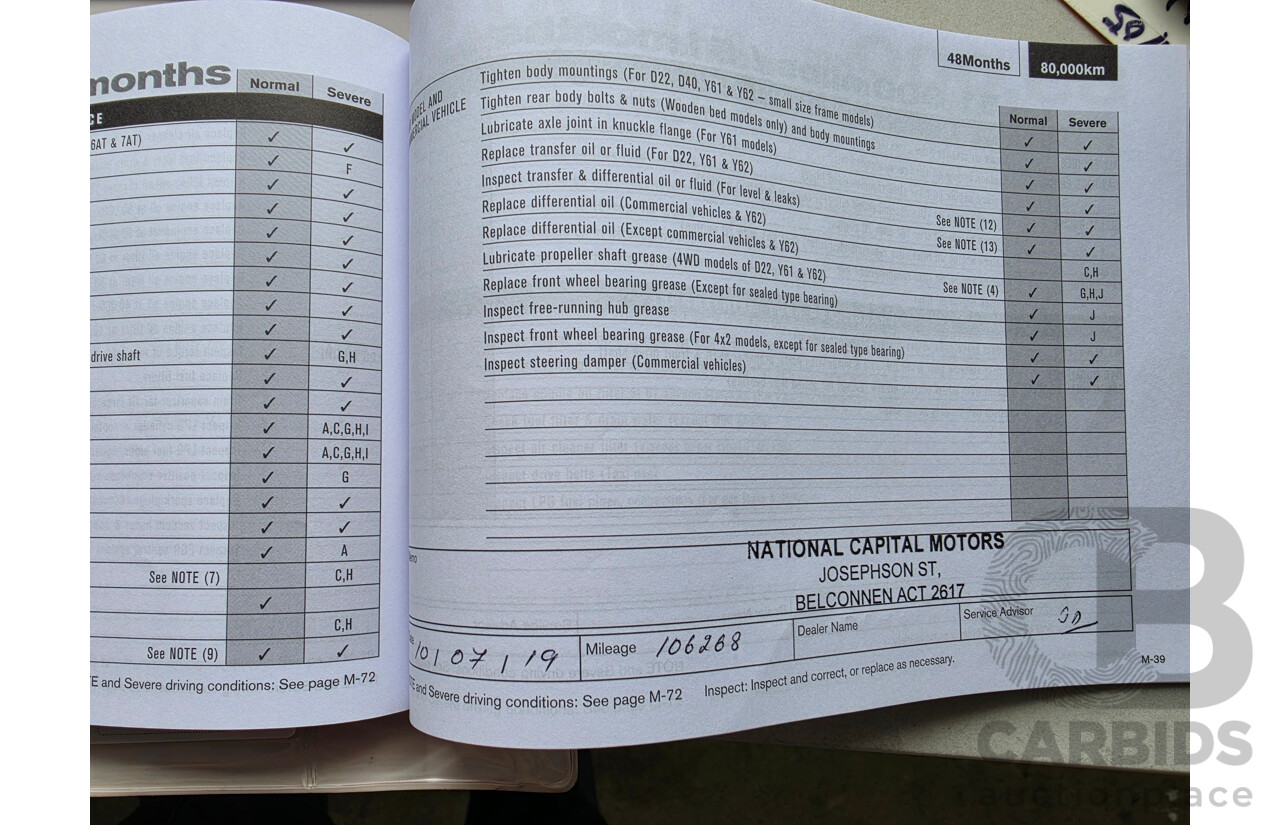 months
Normal
Severe
CE
6AT & 7AT)
✓ ✓
✓ F
✓ ✓
✓ ✓
✓ ✓
✓ ✓
✓ ✓
✓ ✓
✓ ✓
drive shaft ✓ G,H
✓ ✓
✓ ✓
✓ A,C,G,H,I
✓ A,C,G,H,I
✓ G
✓ ✓
✓ ✓
✓ A
See NOTE (7) C,H
✓
C,H
See NOTE (9) ✓ ✓
and Severe driving conditions: See page M-72
48Months
80,000km
MODEL AND
VEHICLE
Normal
Severe
Tighten body mountings (For D22, D40, Y61 & Y62 – small size frame models) ✓ ✓
Tighten rear body bolts & nuts (Wooden bed models only) and body mountings ✓ ✓
Lubricate axle joint in knuckle flange (For Y61 models) ✓ ✓
Replace transfer oil or fluid (For D22, Y61 & Y62) ✓ ✓
Inspect transfer & differential oil or fluid (For level & leaks) See NOTE (12) ✓ ✓
Replace differential oil (Commercial vehicles & Y62) See NOTE (13) ✓ ✓
Replace differential oil (Except commercial vehicles & Y62) C,H
Lubricate propeller shaft grease (4WD models of D22, Y61 & Y62) See NOTE (4) ✓ G,H,J
Replace front wheel bearing grease (Except for sealed type bearing) ✓ J
Inspect free-running hub grease ✓ J
Inspect front wheel bearing grease (For 4x2 models, except for sealed type bearing) ✓ ✓
Inspect steering damper (Commercial vehicles) ✓ ✓
NATIONAL CAPITAL MOTORS
JOSEPHSON ST,
BELCONNEN ACT 2617
10 / 07 / 19
Mileage 106268
Dealer Name
Service Advisor
and Severe driving conditions: See page M-72
Inspect: Inspect and correct, or replace as necessary.
M-39
CARBIDS
auctionplace